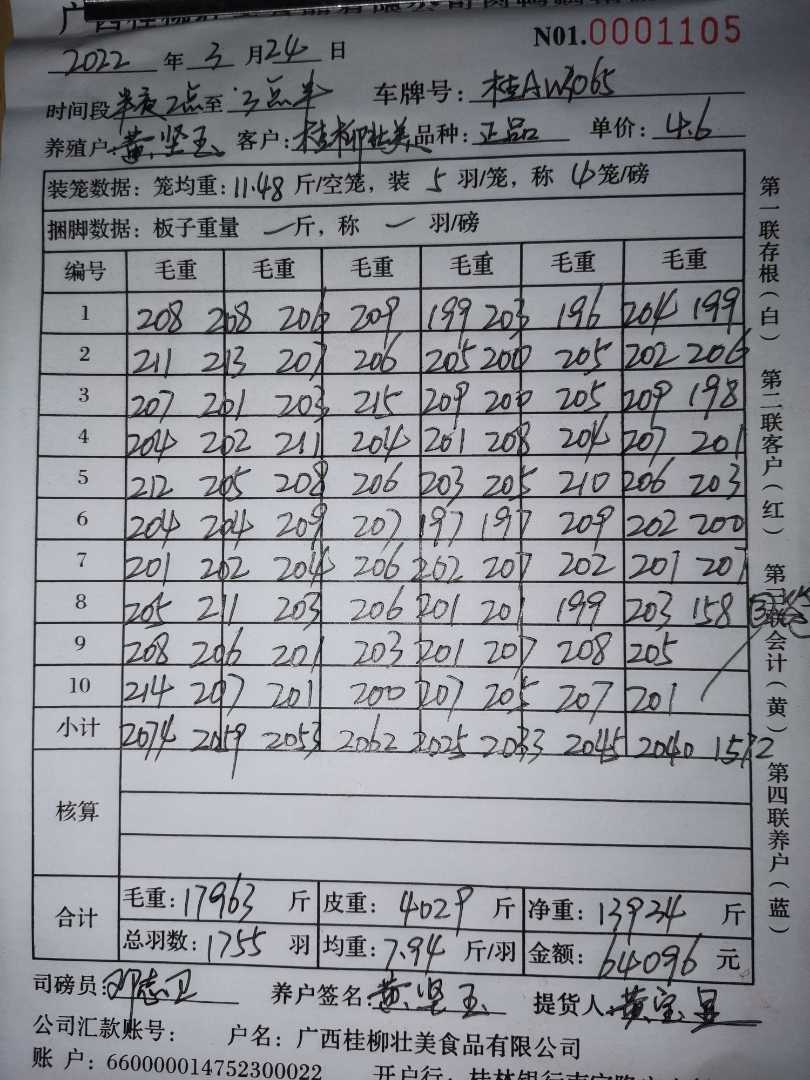 N01.0001105
2022年3月24日
时间段半夜2点至3点半 车牌号:桂AW3065
养殖户:黄坚玉 客户:桂柳壮美 品种:正品 单价:4.6
装笼数据:笼均重:11.48斤/空笼,装5羽/笼,称4笼/磅
捆脚数据:板子重量一斤,称一羽/磅
编号 毛重 毛重 毛重 毛重 毛重 毛重
1 208 208 206 209 199 203 196 204 199
2 211 213 207 206 205 200 205 202 206
3 207 201 203 215 209 200 205 209 198
4 204 202 211 204 201 208 204 207 201
5 212 205 208 206 203 205 210 206 203
6 204 204 209 207 197 197 209 202 200
7 201 202 204 206 202 207 202 201 207
8 205 211 203 206 201 201 199 203 158
9 208 206 201 203 201 207 208 205
10 214 207 201 200 207 205 207 201
小计 2074 2059 2053 2062 2025 2033 2045 2040 1572
核算
合计 毛重:17963斤 皮重:4029斤 净重:13934斤
总羽数:1755羽 均重:7.94斤/羽 金额:64096元
司磅员:邓志卫 养户签名:黄坚玉 提货人:黄宝
公司汇款账号: 户名:广西桂柳壮美食品有限公司
账 户:660000014752300022 开户行:桂林银行南宁
第一联存根(白) 第二联客户(红) 第三联会计(黄) 第四联养户(蓝)